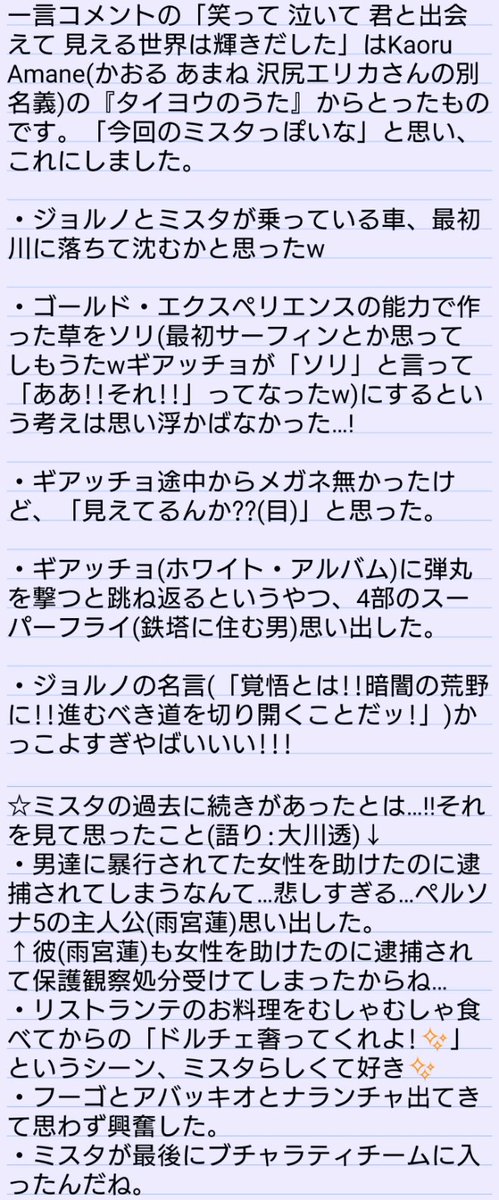 一言コメントの「笑って 泣いて 君と出会
えて 見える世界は輝きだした」はKaoru
Amane(かおる あまね 沢尻エリカさんの別
名義)の『タイヨウのうた』からとったもの
です。「今回のミスタっぽいな」と思い、
これにしました。
・ジョルノとミスタが乗っている車、最初
川に落ちて沈むかと思ったw
・ゴールド・エクスペリエンスの能力で作
った草をソリ(最初サーフィンとか思って
しもうたwギアッチョが「ソリ」と言って
「ああ!!それ!!」ってなったw)にするとい
う考えは思い浮かばなかった…!
・ギアッチョ途中からメガネ無かったけ
ど、「見えてるんか??(目)」と思った。
・ギアッチョ(ホワイト・アルバム)に弾丸
を撃つと跳ね返るというやつ、4部のスー
パーフライ(鉄塔に住む男)思い出した。
・ジョルノの名言(「覚悟とは!!暗闇の荒野
に!!進むべき道を切り開くことだッ!」)か
っこよすぎやばいいい!!!
☆ミスタの過去に続きがあったとは…!!それ
を見て思ったこと(語り:大川透)↓
・男達に暴行されてた女性を助けたのに逮
捕されてしまうなんて…悲しすぎる…ペルソ
ナ5の主人公(雨宮蓮)思い出した。
↑彼(雨宮蓮)も女性を助けたのに逮捕され
て保護観察処分受けてしまったからね…
・リストランテのお料理をむしゃむしゃ食
べてからの「ドルチェ奢ってくれよ!✨」
というシーン、ミスタらしくて好き✨
・フーゴとアバッキオとナランチャ出てき
て思わず興奮した。
・ミスタが最後にブチャラティチームに入
ったんだね。